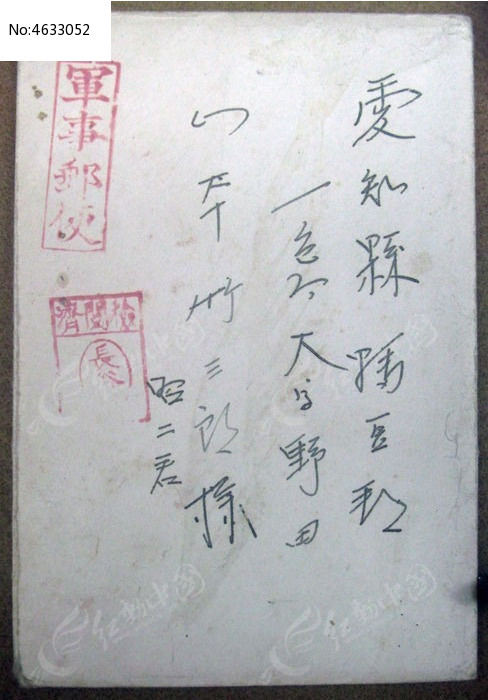 No:4633052
愛知縣 幡豆郡
一色町大字野田
山本竹三郎様
昭二君
軍事郵便
檢閲濟
長
红动中国
红动中国